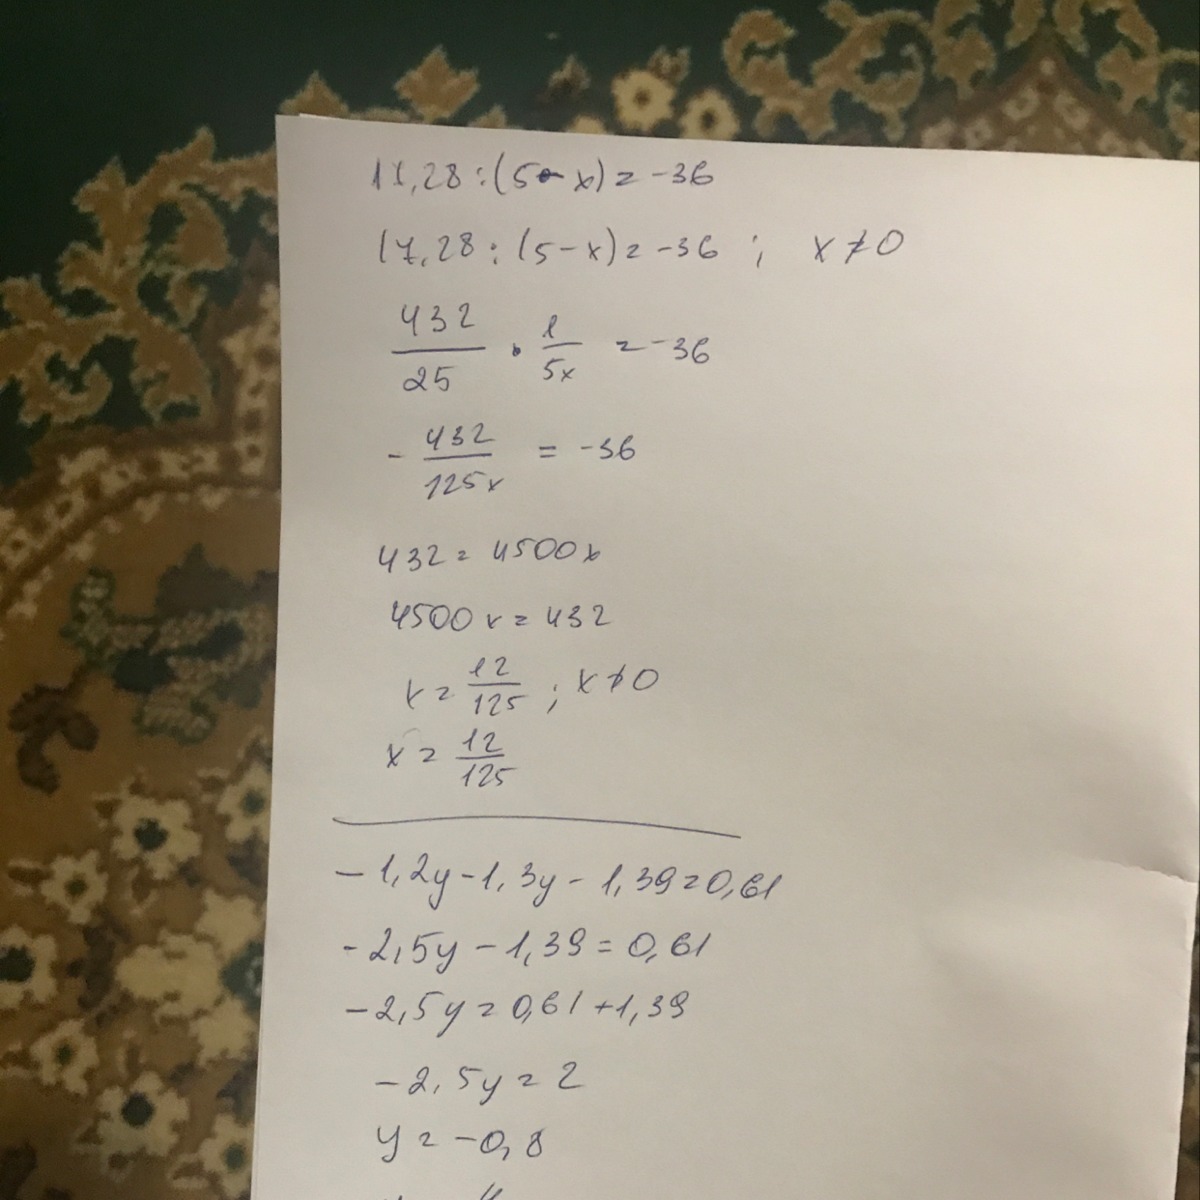 17,28:(5-x)=-36
17,28:(5-x)=-36 ; x≠0
432/25 · 1/5x = -36
- 432/125x = -36
432=4500x
4500x=432
x=12/125 ; x≠0
x=12/125
-1,2y-1,3y-1,39=0,61
-2,5y-1,39=0,61
-2,5y=0,61+1,39
-2,5y=2
y=-0,8